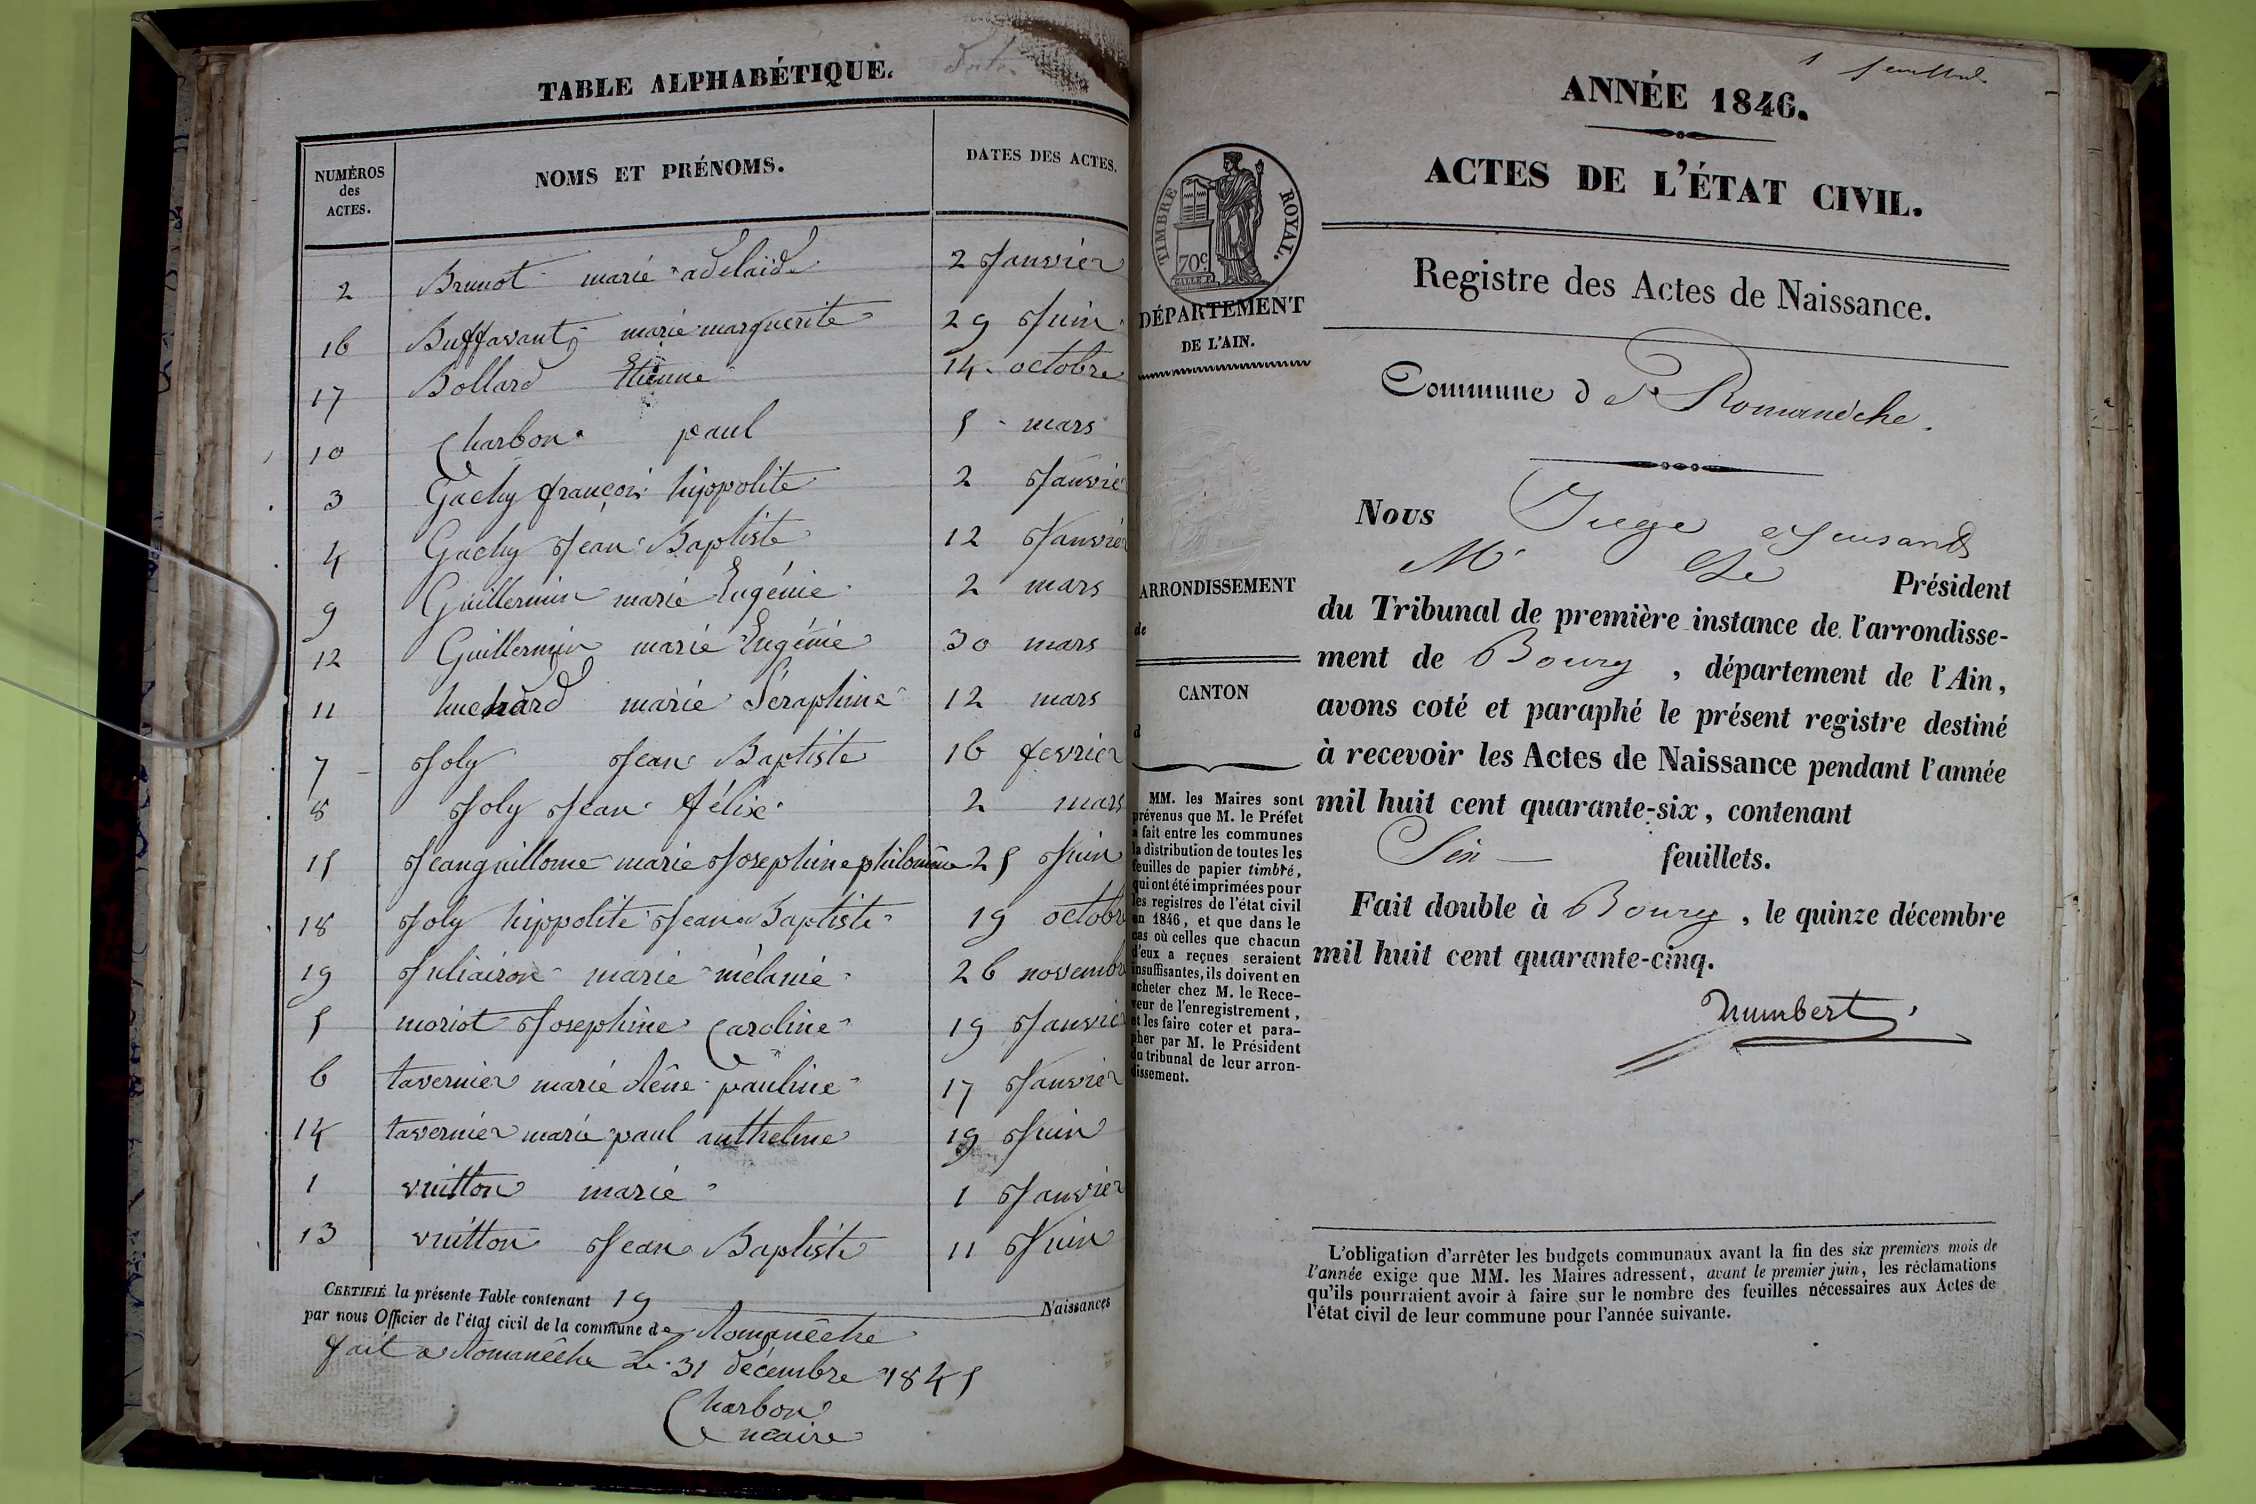 TABLE ALPHABÉTIQUE.
NUMÉROS des ACTES. NOMS ET PRÉNOMS. DATES DES ACTES.
2 Brunot marie adelaïde 2 Janvier
16 Buffavant marie marguerite 29 Juin
17 Bollard Etienne 14 octobre
10 Charbon paul 5 mars
3 Gachy françois hippolite 2 Janvier
4 Gachy Jean Baptiste 12 Janvier
9 Guillermin marie Eugénie 2 mars
12 Guillermin marie Eugénie 30 mars
11 huchard marie Séraphine 12 mars
7 Joly Jean Baptiste 16 fevrier
8 Joly Jean félix 2 mars
15 Jeanguillome marie Josephine philomène 25 Juin
18 Joly hippolite Jean Baptiste 19 octobr
19 Juliairon marie mélanie 26 novembr
5 moriot Josephine Caroline 19 Janvier
6 tavernier marie Rêne pauline 17 Janvier
14 tavernier marie paul anthelme 19 Juin
1 vuitton marie 1 Janvier
13 vuitton Jean Baptiste 11 Juin
CERTIFIÉ la présente Table contenant 19 Naissances
par nous Officier de l'état civil de la commune de Romanêche
fait a Romanêche Le 31 décembre 1845
Charbon
maire
1 feuillet
ANNÉE 1846.
ACTES DE L'ÉTAT CIVIL.
TIMBRE ROYAL.
70c
DÉPARTEMENT
DE L'AIN.
ARRONDISSEMENT
de
CANTON
d
MM. les Maires sont
prévenus que M. le Préfet
a fait entre les communes
la distribution de toutes les
feuilles de papier timbré,
qui ont été imprimées pour
les registres de l'état civil
en 1846, et que dans le
cas où celles que chacun
d'eux a reçues seraient
insuffisantes, ils doivent en
acheter chez M. le Rece-
veur de l'enregistrement,
et les faire coter et para-
pher par M. le Président
du tribunal de leur arron-
dissement.
Registre des Actes de Naissance.
Commune de Romanêche.
Nous Juge
Mr Le Président
du Tribunal de première instance de l'arrondisse-
ment de Bourg, département de l'Ain,
avons coté et paraphé le présent registre destiné
à recevoir les Actes de Naissance pendant l'année
mil huit cent quarante-six, contenant
feuillets.
Fait double à Bourg, le quinze décembre
mil huit cent quarante-cinq.
humbert
L'obligation d'arrêter les budgets communaux avant la fin des six premiers mois de
l'année exige que MM. les Maires adressent, avant le premier juin, les réclamations
qu'ils pourraient avoir à faire sur le nombre des feuilles nécessaires aux Actes de
l'état civil de leur commune pour l'année suivante.